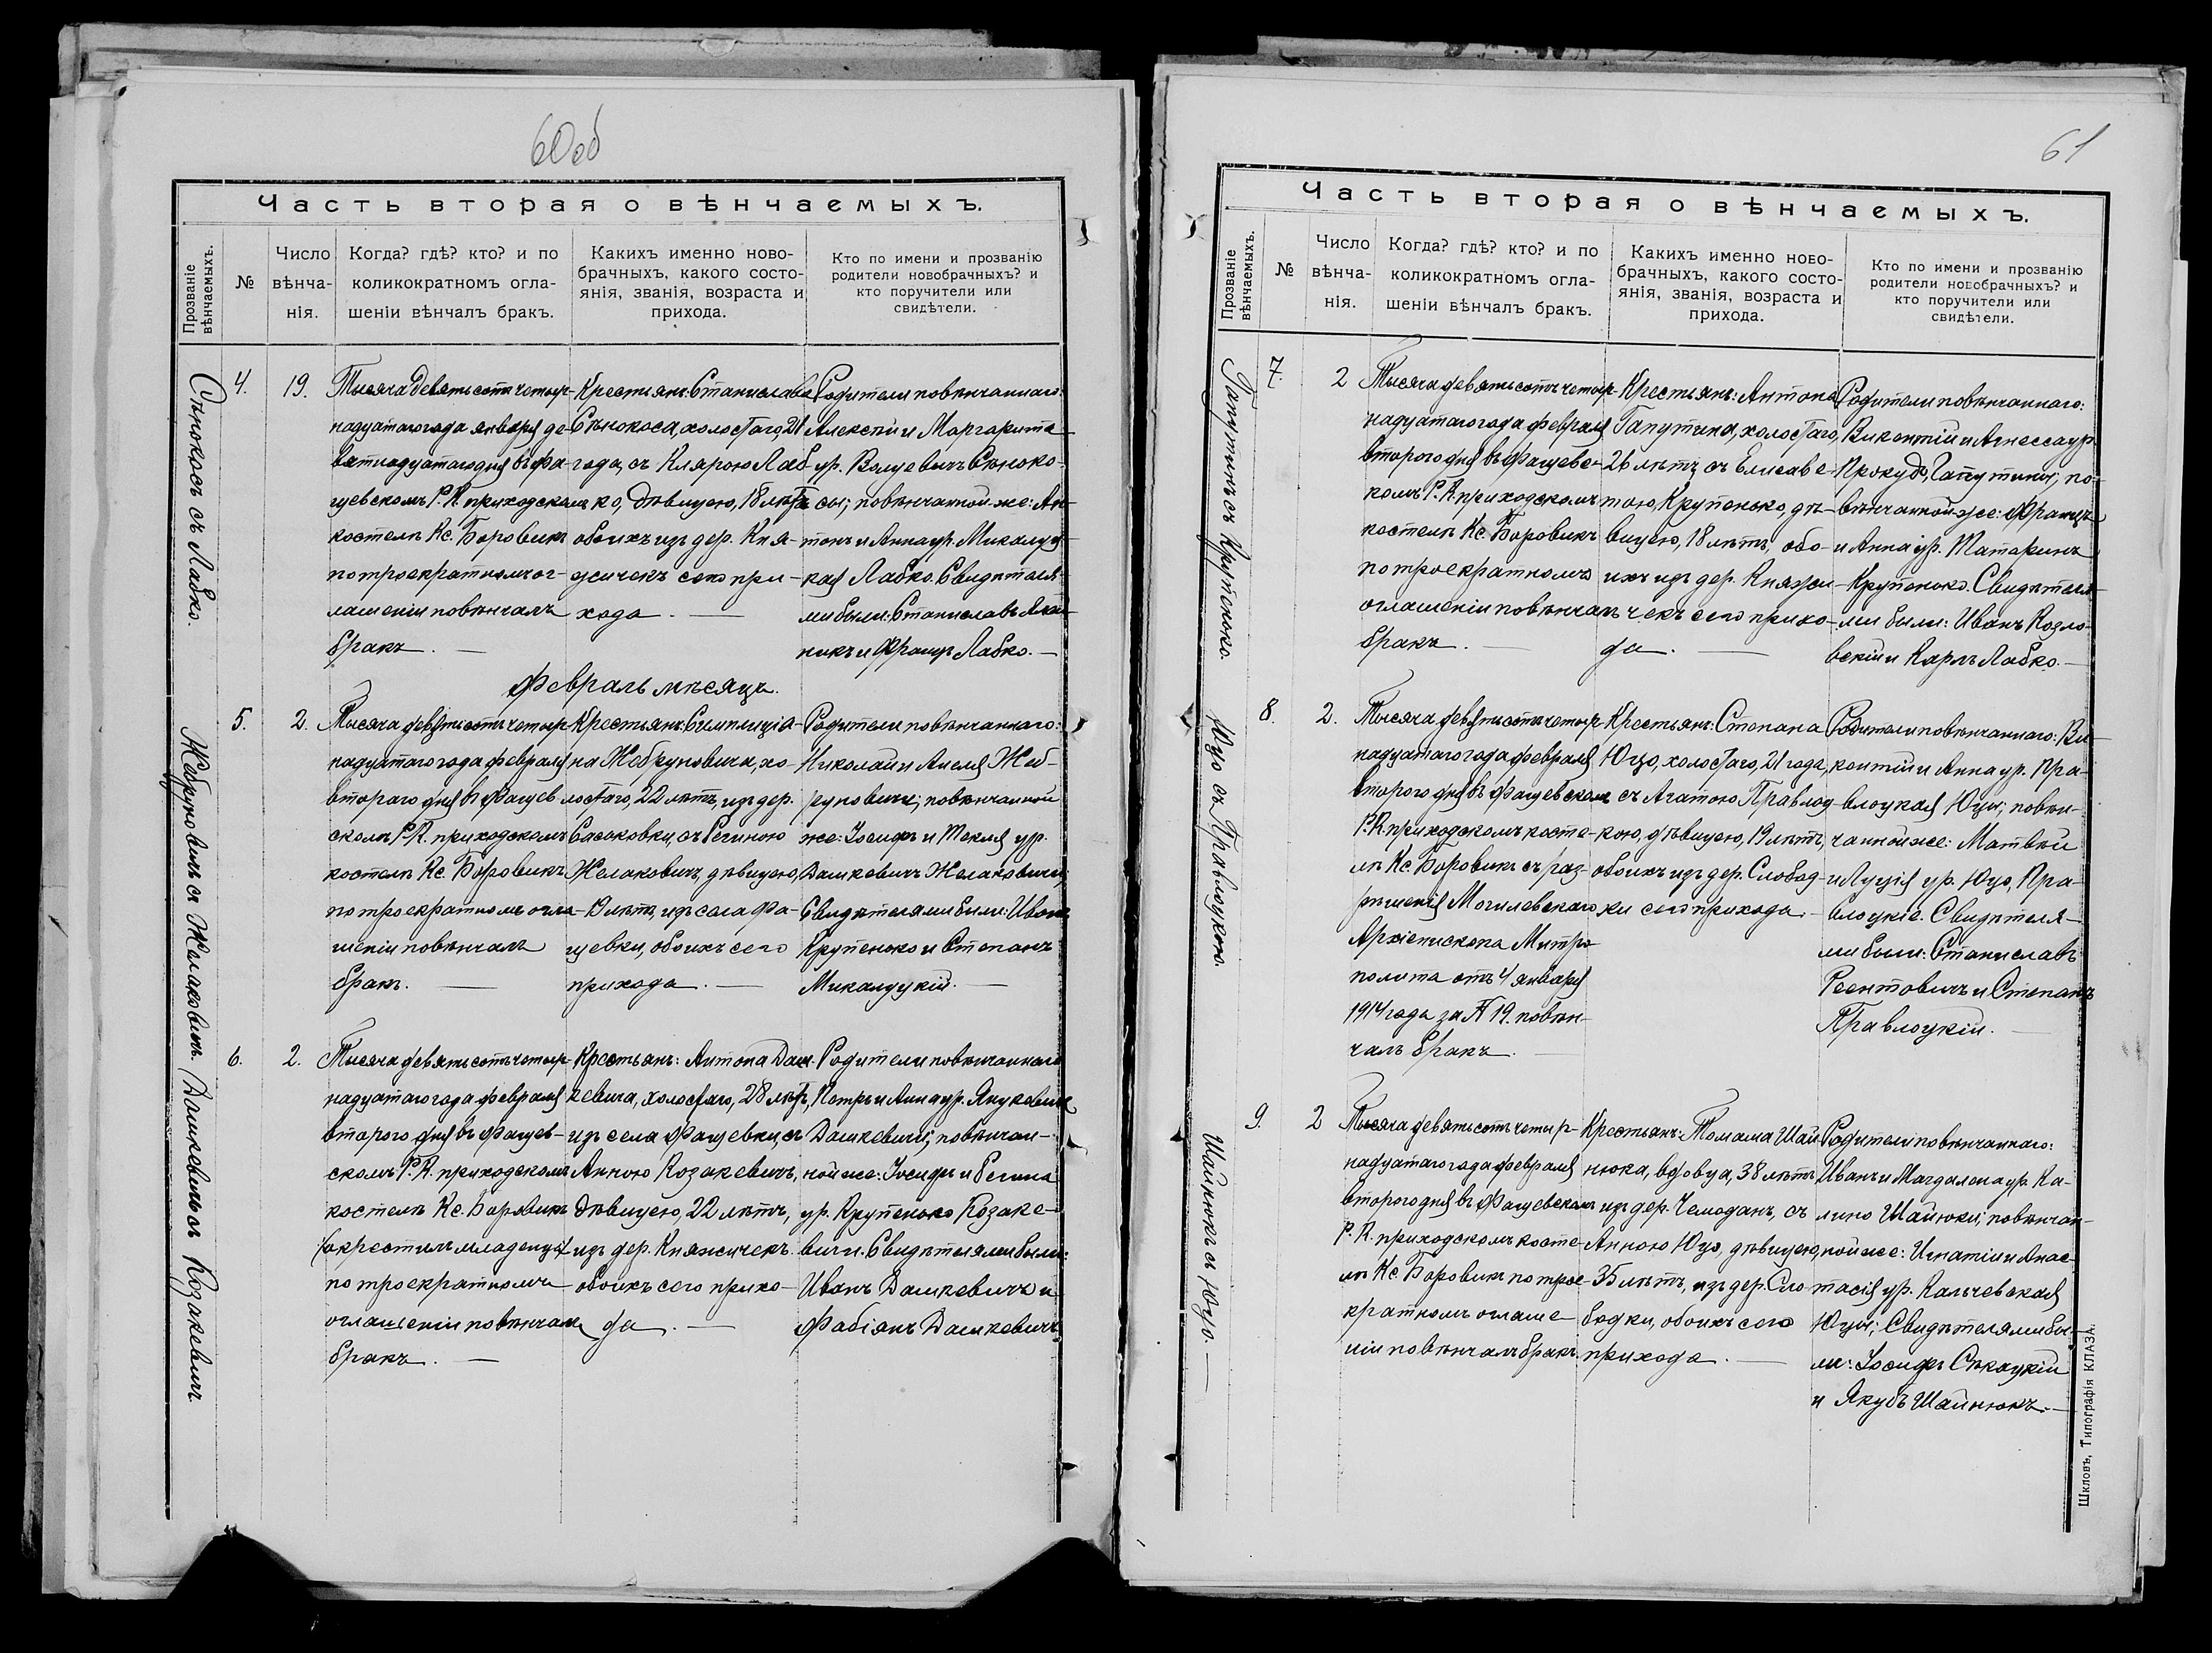 60об
Часть вторая о вѣнчаемыхъ.
Прозваніе вѣнчаемыхъ.
№
Число вѣнча-нія.
Когда? гдѣ? кто? и по
коликократномъ огла-
шеніи вѣнчалъ бракъ.
Какихъ именно ново-
брачныхъ, какого состо-
янія, званія, возраста и
прихода.
Кто по имени и прозванію
родители новобрачныхъ? и
кто поручители или
свидѣтели.
Сѣнокосъ съ Лабко.
4.
19.
Тысяча девятьсотъ четыр-
надцатаго года января де-
вятнадцатаго дня въ Фа-
щевскомъ Р. К. приходскомъ
костелѣ Кс. Боровикъ
по троекратномъ ог-
лашеніи повѣнчалъ
бракъ. —
Крестьянъ: Станислава
Сѣнокоса, холостаго, 21
года, съ Клярою Лаб-
ко, дѣвицею, 18 лѣтъ
обоихъ изъ дер. Кня-
жичекъ сего при-
хода. —
Родители повѣнчаннаго:
Алексѣй и Маргарита
ур. Волуевичъ Сѣноко-
сы; повѣнчанной же: Ан-
тонъ и Анна ур. Микалуц-
кая Лабко. Свидѣтеля-
ми были: Станиславъ
никъ и Францъ Лабко. —
Февраль мѣсяцъ.
Жебруновичъ съ Желаковичъ.
5.
2.
Тысяча девятьсотъ четыр-
надцатаго года февраля
втораго дня въ Фащев-
скомъ Р. К. приходскомъ
костелѣ Кс. Боровикъ
по троекратномъ огла-
шеніи повѣнчалъ
бракъ. —
Крестьянъ: Симплиціа-
на Жебруновича, хо-
лостаго, 22 лѣтъ, изъ дер.
Сасоковки, съ Региною
Желаковичъ, дѣвицею,
19 лѣтъ, изъ села Фа-
щевки, обоихъ сего
прихода. —
Родители повѣнчаннаго:
Николай и Анеля Жеб-
руновичи; повѣнчанной
же: Іосифъ и Текля ур.
Дашкевичъ Желаковичи;
Свидѣтелями были: Иванъ
Крупенько и Степанъ
Микалуцкій. —
Дашкевичъ съ Козакевичъ.
6.
2.
Тысяча девятьсотъ четыр-
надцатаго года февраля
второго дня въ Фащев-
скомъ Р. К. приходскомъ
костелѣ Кс. Боровикъ
(окрестилъ младенца)
по троекратномъ
оглашеніи повѣнчалъ
бракъ. —
Крестьянъ: Антона Даш-
кевича, холостаго, 28 лѣтъ,
изъ села Фащевки, съ
Анною Козакевичъ,
дѣвицею, 22 лѣтъ,
изъ дер. Княжичекъ
обоихъ сего прихо-
да. —
Родители повѣнчаннаго
Петръ и Анна ур. Янукевичъ
Дашкевичи; повѣнчан-
ной же: Іосифъ и Регина
ур. Крупенько Козаке-
вичи. Свидѣтелями были:
Иванъ Дашкевичъ и
Фабіянъ Дашкевичъ.
61
Часть вторая о вѣнчаемыхъ.
Прозваніе вѣнчаемыхъ.
№
Число вѣнча-нія.
Когда? гдѣ? кто? и по
коликократномъ огла-
шеніи вѣнчалъ бракъ.
Какихъ именно ново-
брачныхъ, какого состо-
янія, званія, возраста и
прихода.
Кто по имени и прозванію
родители новобрачныхъ? и
кто поручители или
свидѣтели.
Гапутинъ съ Крупенько.
7.
2
Тысяча девятьсотъ четыр-
надцатаго года февраля
второго дня въ Фащевс-
комъ Р. К. приходскомъ
костелѣ Кс. Боровикъ
по троекратномъ
оглашеніи повѣнчалъ
бракъ. —
Крестьянъ: Антона
Гапутина, холостаго,
26 лѣтъ, съ Елисаве-
тою Крупенько, дѣ-
вицею, 18 лѣтъ, обо-
ихъ изъ дер. Княжи-
чекъ сего прихо-
да. —
Родители повѣнчаннаго:
Викентій и Агнесса ур.
Прокудо, Гапутины; по-
вѣнчанной же: Францъ
и Анна ур. Татаринъ
Крупенько. Свидѣтеля-
ми были: Иванъ Козло-
вскій и Карлъ Лабко. —
Юцо съ Правлоцкою.
8.
2.
Тысяча девятьсотъ четыр-
надцатаго года февраля
второго дня въ Фащевскомъ
Р. К. приходскомъ косте-
лѣ Кс. Боровикъ съ раз-
рѣшенія Могилевскаго
Архіепископа Митро-
полита отъ 4 января
1914 года за № 19. повѣн-
чалъ бракъ. —
Крестьянъ: Степана
Юцо, холостаго, 21 года,
съ Агатою Правлоц-
кою, дѣвицею, 19 лѣтъ,
обоихъ изъ дер. Слобод-
ки сего прихода. —
Родители повѣнчаннаго: Ви-
кентій и Анна ур. Пра-
влоцкая Юцы; повѣн-
чанной же: Матвѣй
и Луція ур. Юцо, Пра-
влоцкіе. Свидѣтеля-
ми были: Станиславъ
Реентовичъ и Степанъ
Правлоцкій. —
Шайнюкъ съ Юцо. —
9.
2
Тысяча девятьсотъ четыр-
надцатаго года февраля
второго дня въ Фащевскомъ
Р. К. приходскомъ косте-
лѣ Кс. Боровикъ по трое-
кратномъ оглаше-
ніи повѣнчалъ бракъ.
Крестьянъ: Томаша Шай-
нюка, вдовца, 38 лѣтъ
изъ дер. Чемоданъ, съ
Анною Юцо, дѣвицею,
35 лѣтъ, изъ дер. Сло-
бодки, обоихъ сего
прихода. —
Родители повѣнчаннаго:
Иванъ и Магдалена ур. Ка-
лино Шайнюки; повѣнчан-
ной же: Игнатій и Анас-
тасія ур. Кальчевская
Юцы; Свидѣтелями бы-
ли: Іосифъ Сѣкацкій
и Якубъ Шайнюкъ. —
Шкловъ, Типографія КЛАЗА.